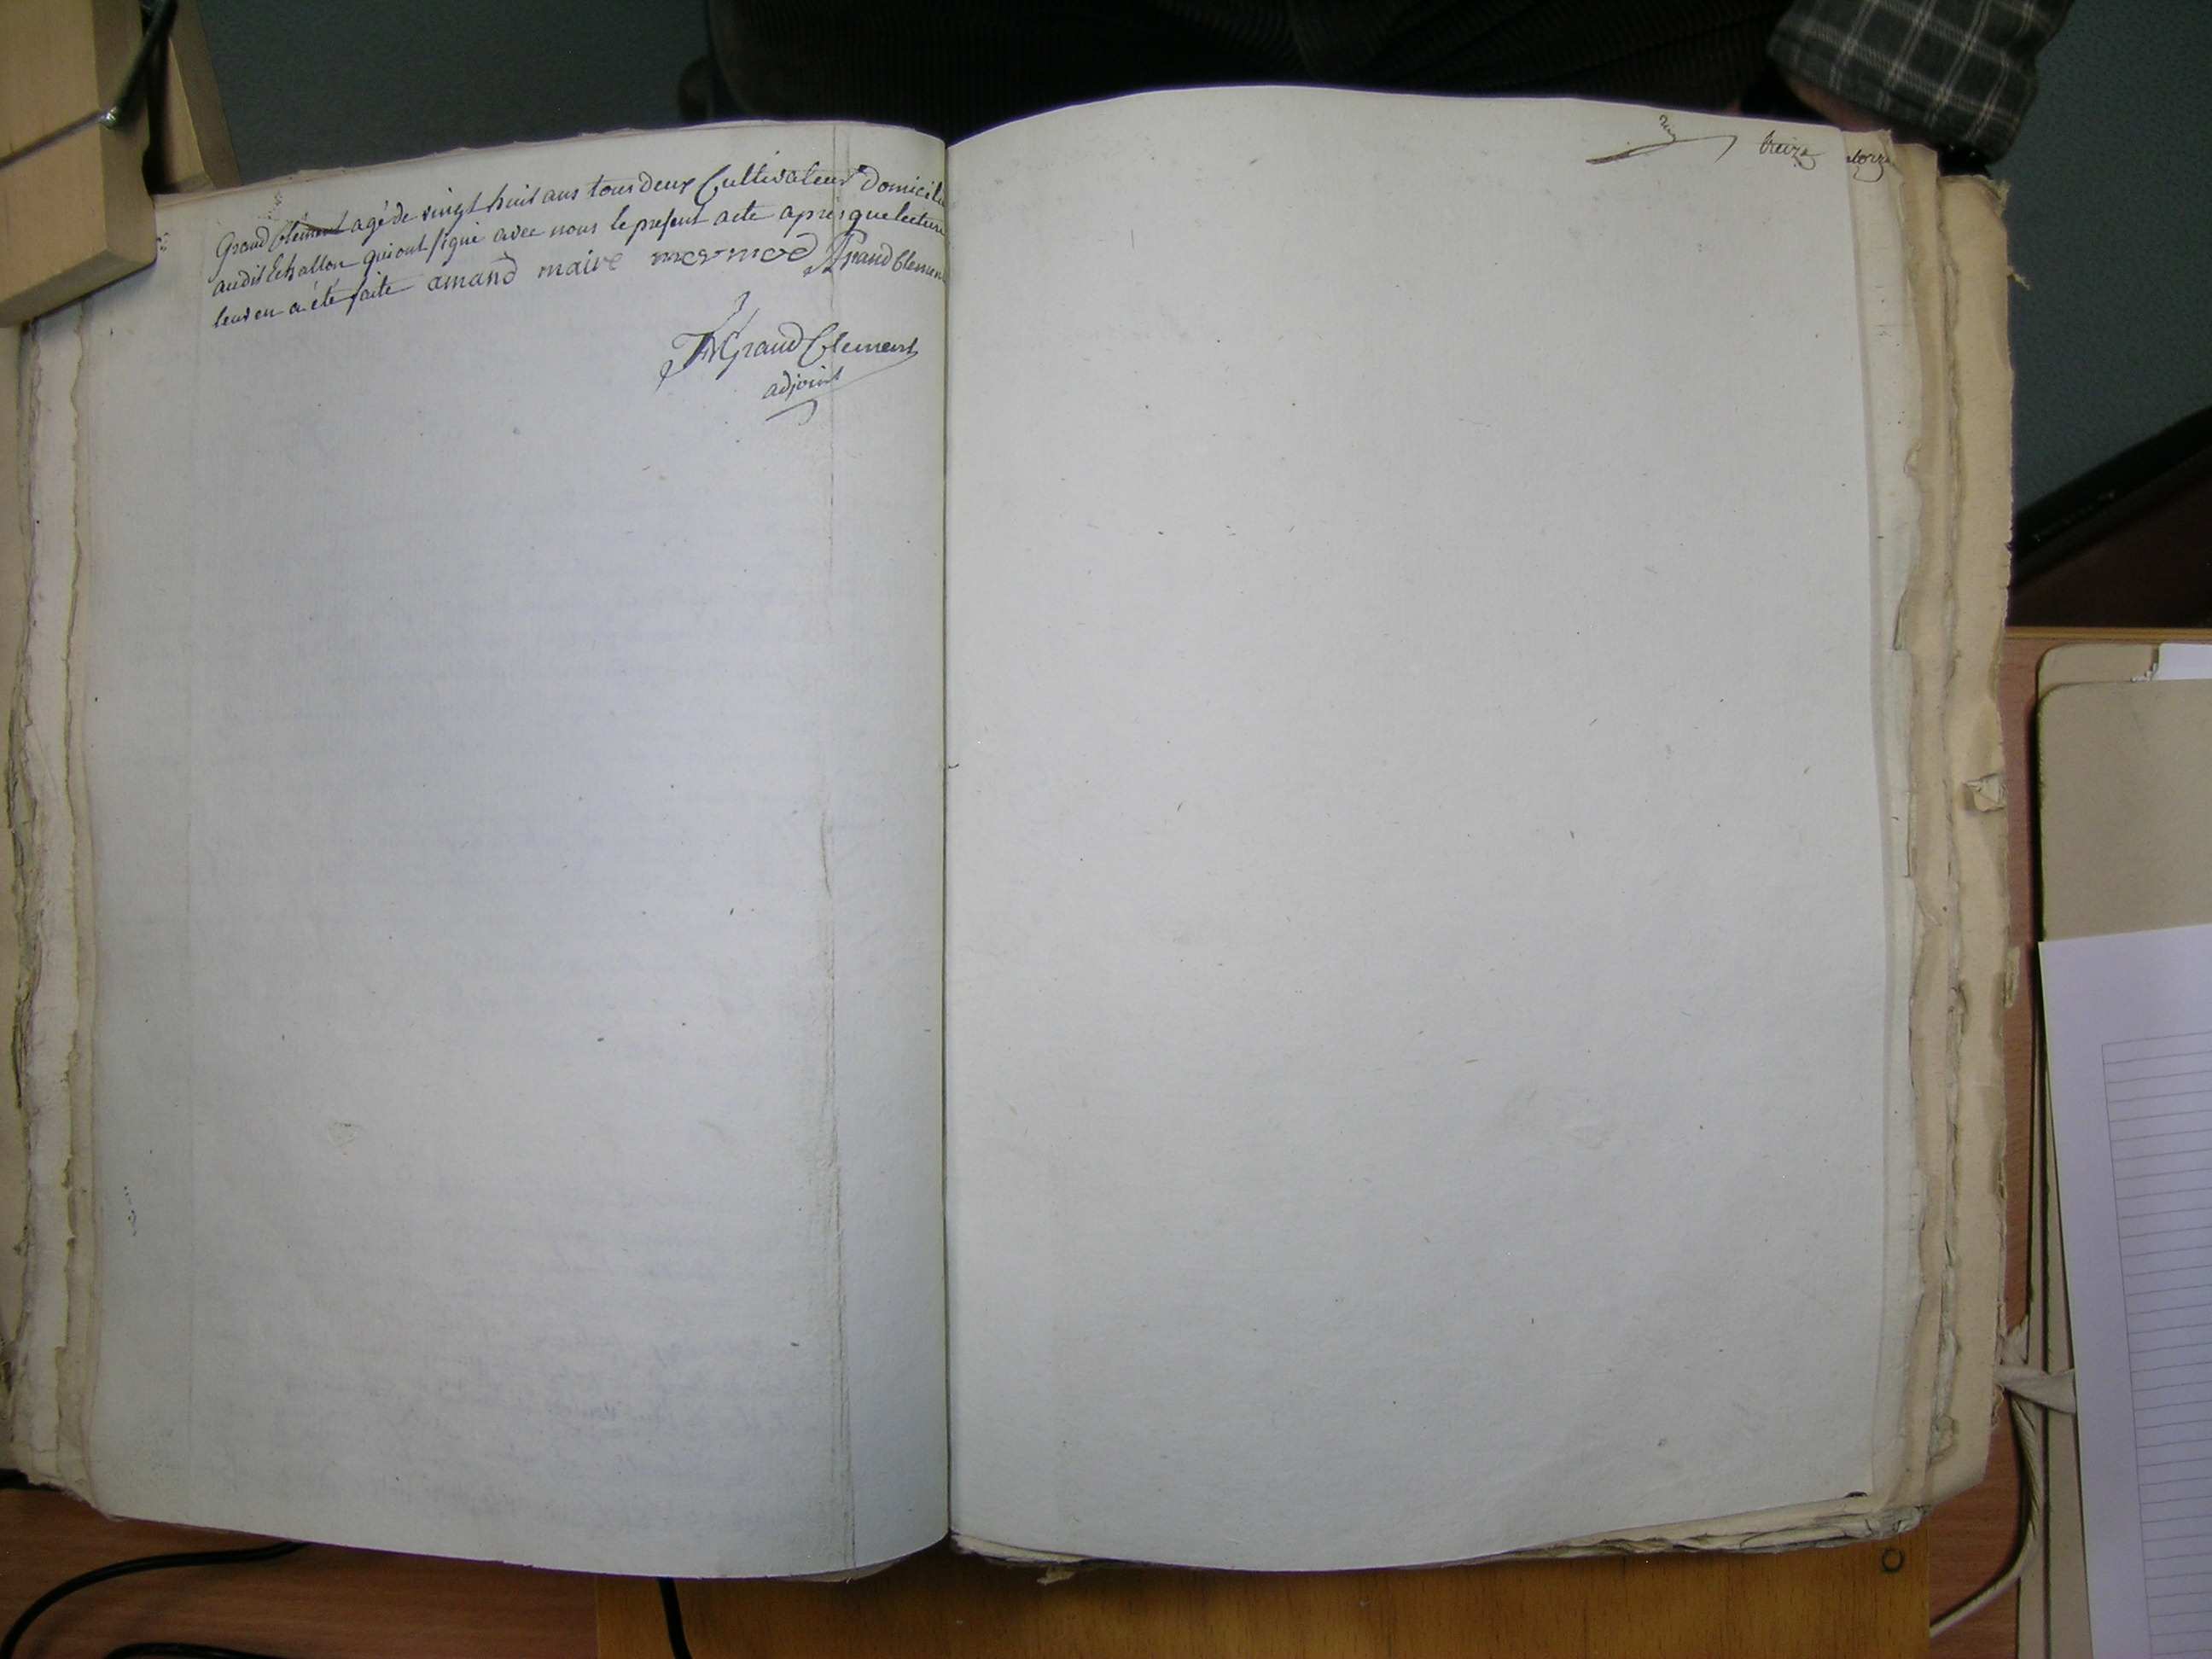 Grand Clement agé de vingt huit ans tous deux Cultivateur domicil
audit Echallon qui ont signé avec nous le present acte apres que lecture
leur en a été faite amand maire mermod Grand Clemen
Grand Clement
adjoint
treize